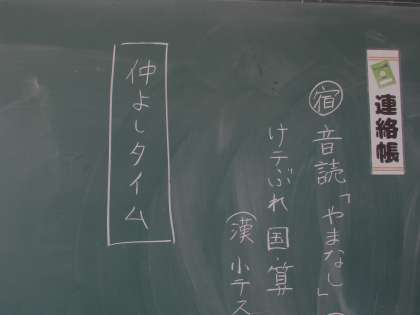 連絡帳
宿 音読「やまなし」
けテぶれ 国・算
(漢 小テス
仲よしタイム